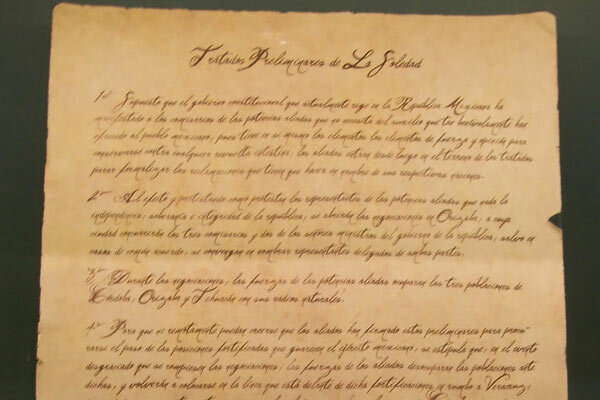 Tratados Preliminares de La Soledad
1º Supuesto que el gobierno constitucional que actualmente rige en la República Mexicana ha
manifestado a los comisarios de las potencias aliadas que no necesita del auxilio que tan benévolamente han
ofrecido al pueblo mexicano, pues tiene en sí mismo los elementos los elementos de fuerza y opinión para
conservarse contra cualquier revuelta intestina, los aliados entran desde luego en el terreno de los tratados
para formalizar las reclamaciones que tienen que hacer en nombre de sus respectivas naciones.
2º Al efecto y protestando como protestan los representantes de las potencias aliadas que nada la
independencia, soberanía e integridad de la república, se abrirán las negociaciones en Orizaba, a cuya
ciudad concurrirán los tres comisarios y dos de los señores ministros del gobierno de la república, salvo en
casos de común acuerdo, se convengan en nombrar representantes delegados de ambas partes.
3º Durante las negociaciones, las fuerzas de las potencias aliadas ocuparan las tres poblaciones de
Córdoba, Orizaba y Tehuacán con sus radios naturales.
4º Para que ni remotamente puedan creerse que los aliados han firmado estos preliminares para procu-
rarse el paso de las posiciones fortificadas que guarecen el ejército mexicano, se estipula que, en el evento
desgraciado que se rompiesen las negociaciones, las fuerzas de los aliados desocuparan las poblaciones ante
dichas, y volverán a colocarse en la línea que está delante de dicha fortificaciones en rumbo a Veracruz,